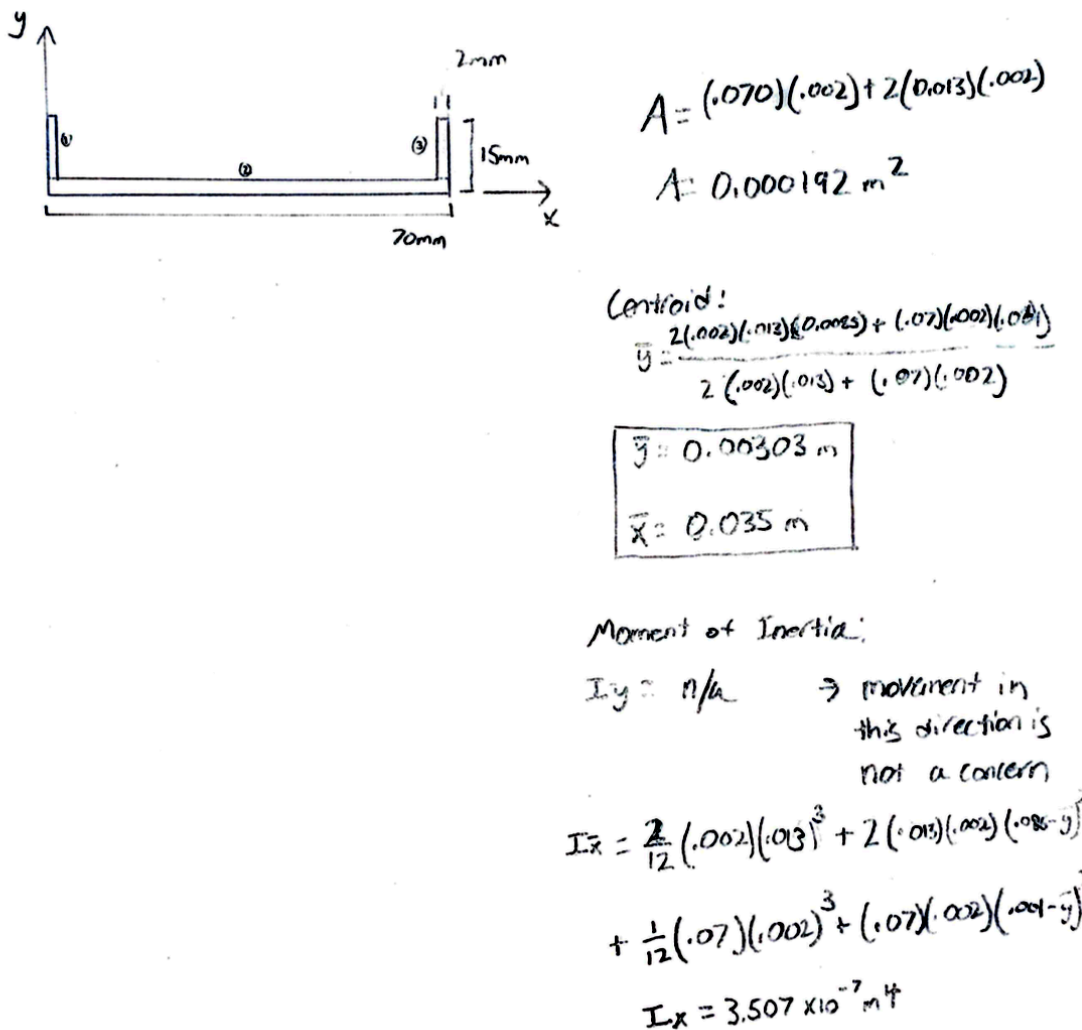 y
2mm
①
②
③
15mm
x
70mm
A = (.070)(.002) + 2(0.013)(.002)
A = 0.000192 m²
Centroid:
ȳ = 2(.002)(.013)(0.0085) + (.07)(.002)(.001)
2(.002)(.013) + (.07)(.002)
ȳ = 0.00303 m
x̄ = 0.035 m
Moment of Inertia:
Iy = n/a → movement in
this direction is
not a concern
Ix̄ = 2/12 (.002)(.013)³ + 2(.013)(.002)( -ȳ)
+ 1/12 (.07)(.002)³ + (.07)(.002)(.001-ȳ)
Ix = 3.507 x10⁻⁷ m⁴